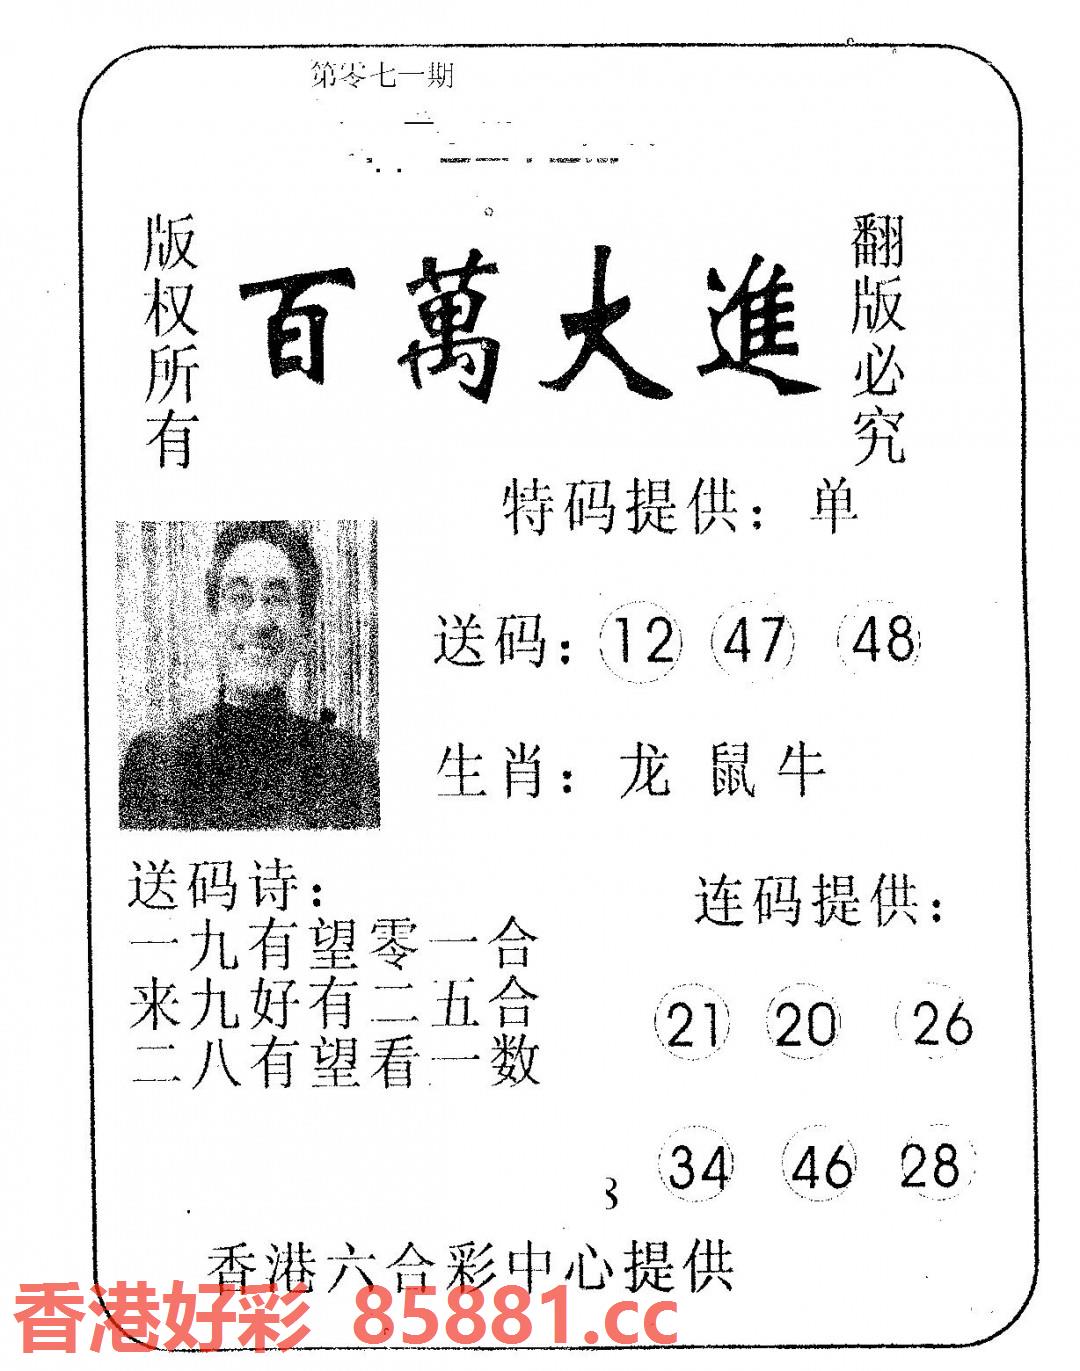 第零七一期
版权所有
百萬大進
翻版必究
特码提供：单
送码：12 47 48
生肖：龙 鼠 牛
送码诗：
一九有望零一合
来九好有二五合
二八有望看一数
连码提供：
21 20 26
34 46 28
香港六合彩中心提供
香港好彩 85881.cc